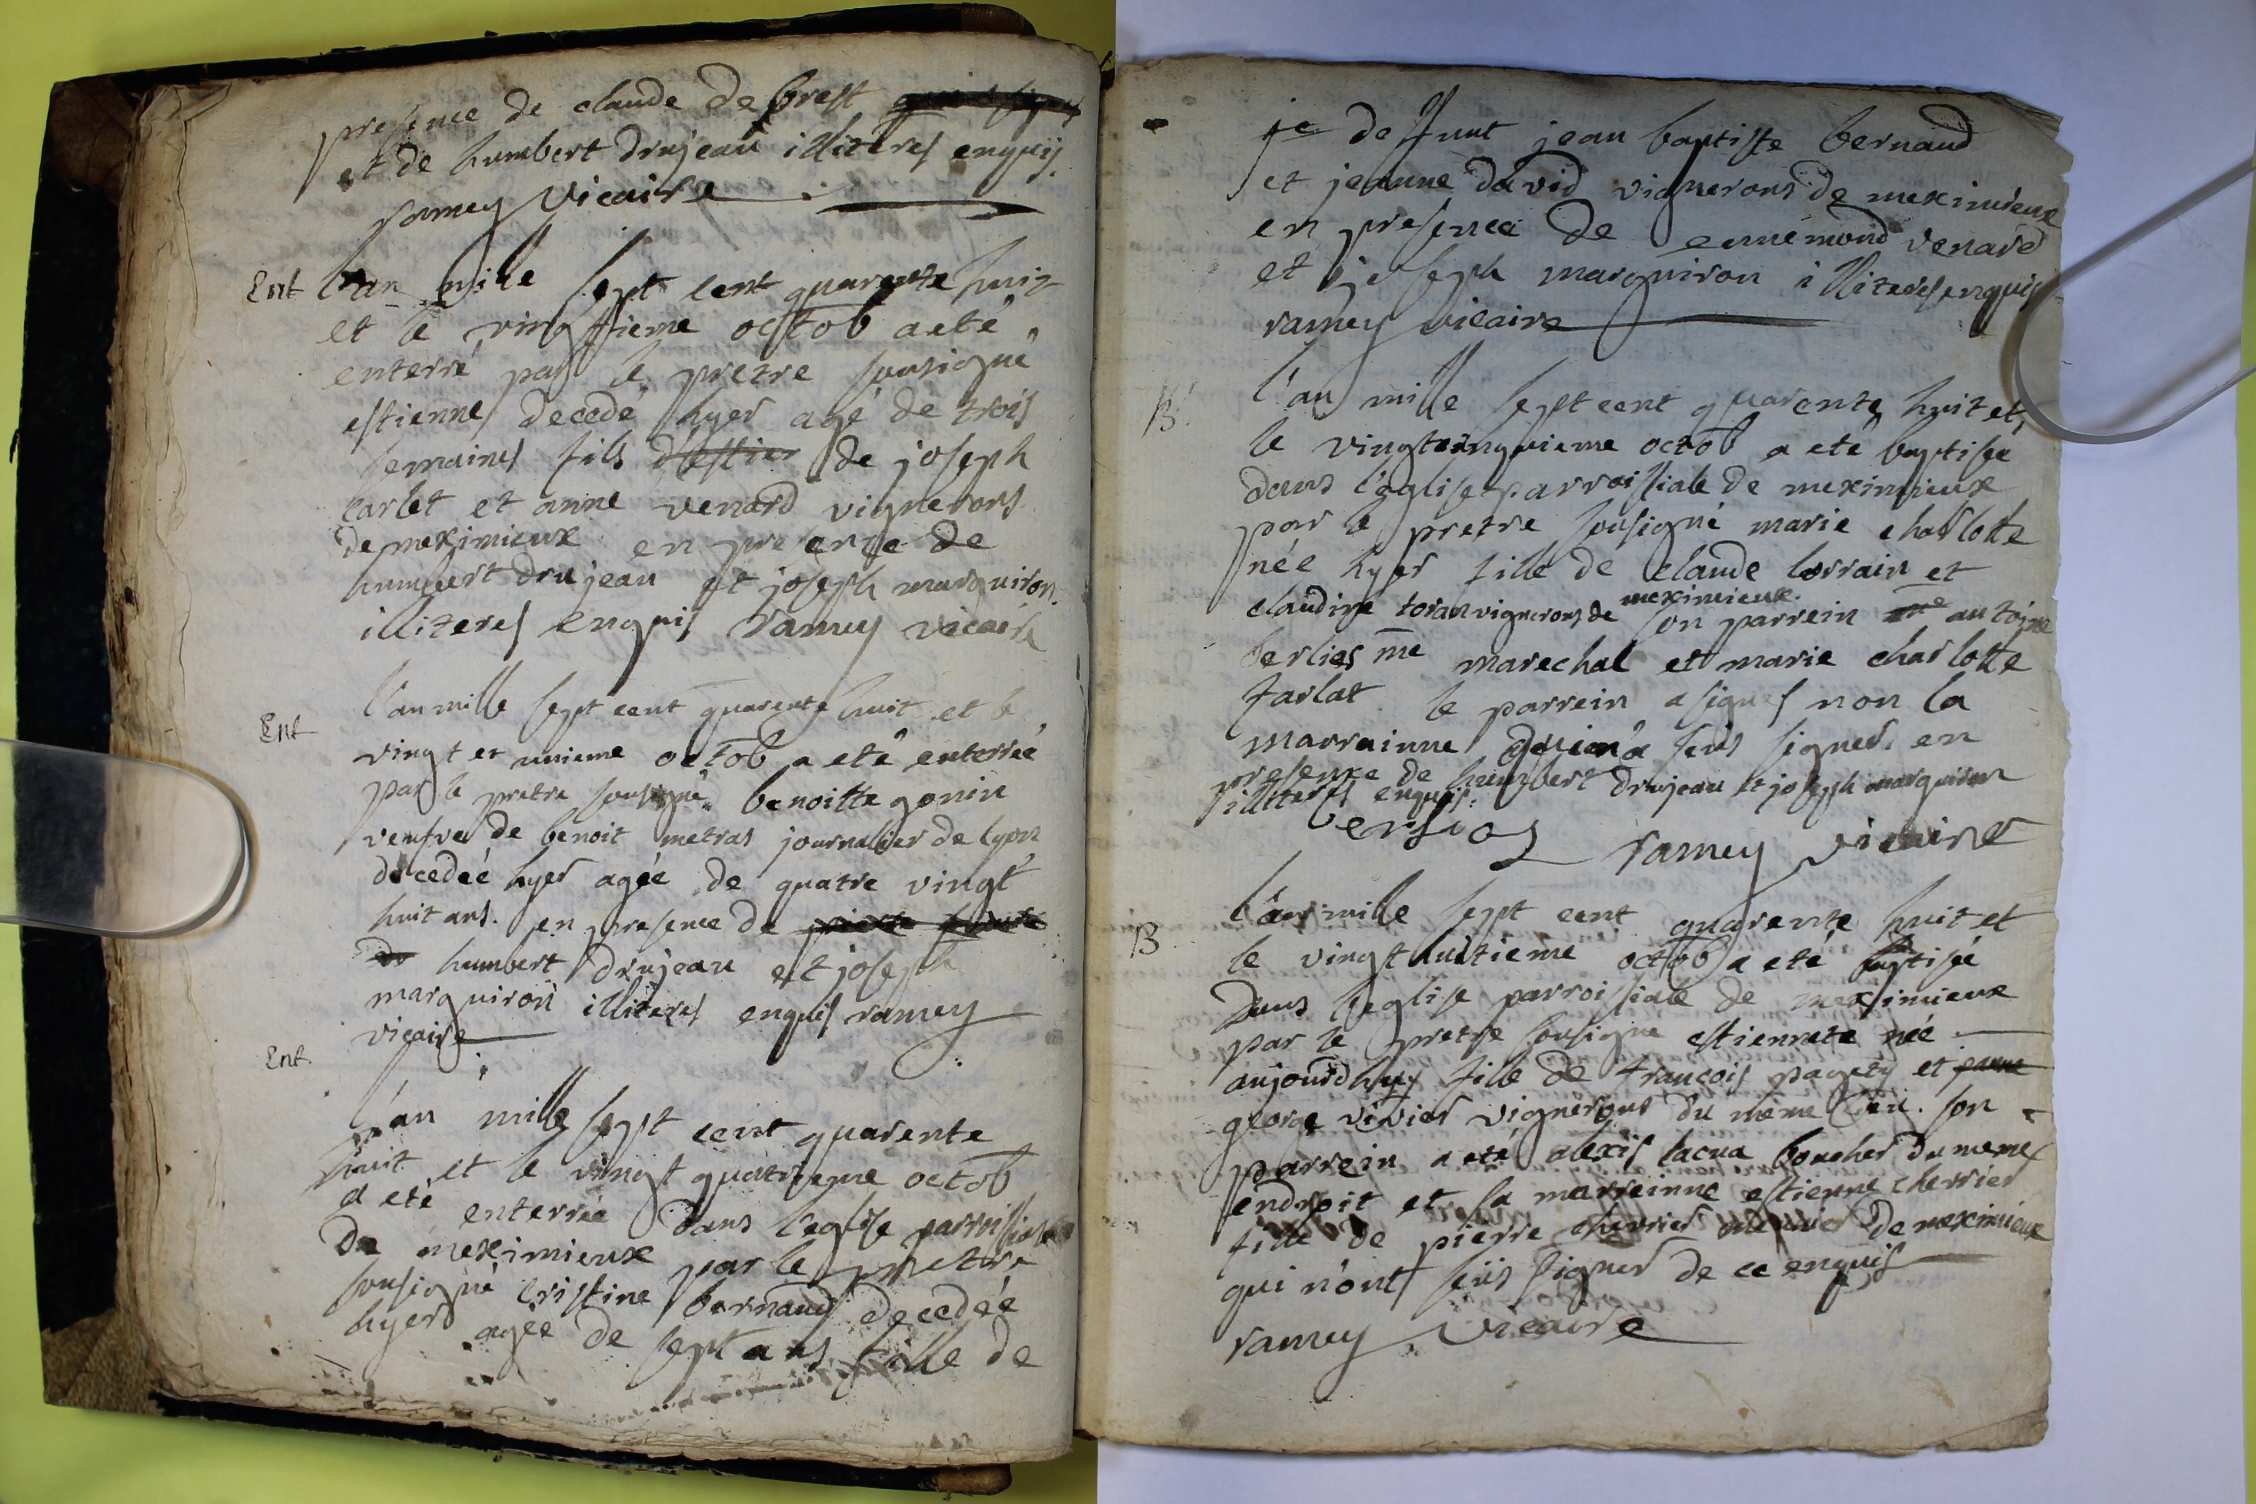 presence de claude de brest
et de humbert drujeau illiteres enquis.
ramey vicaire
Ent l'an mille sept cent quarente huit
et le vingtieme octob a eté
enterré par le pretre sousigné
estienne decedé hyer agé de trois
semaines fils d'estien de joseph
carlet et anne venard vignerons
de meximieux en presence de
humbert drujeau et joseph marquiron
illiteres enquis ramey vicaire
Ent l'an mille sept cent quarente huit et le
vingt et unieme octob a eté enterreé
par le pretre sousigné benoitte gonin
veufve de benoit metras journalier de lyon
decedeé hyer ageé de quatre vingt
huit ans. en presence de
humbert drujeau et joseph
marquiron illiteres enquis ramey
vicaire
Ent.
l'an mille sept cent quarente
huit et le vingt quatrieme octob
a eté enterreé dans l'eglise parroissiale
de meximieux par le pretre
sousigné cristine bernaud decedeé
hyer ageé de sept ans fille de
de funt jean baptiste bernaud
et jeanne david vignerons de meximieux
en presence de ennemond venard
et joseph marquiron illiteres enquis
ramey vicaire
B. l'an mille sept cent quarente huit et
le vingtcinquieme octob a eté baptisée
dans l'eglise parroissiale de meximieux
par le pretre sousigné marie charlotte
née hyer fille de claude lorrain et
claudine toran vignerons de meximieux. son parrein antoine
berlies me marechal et marie charlotte
farlat le parrein a signé non la
marrainne qui n'a seus signer en
presence de humbert drujeau et joseph marquiron
illiteres enquis.
berlies ramey vicaire
B l'an mille sept cent quarente huit et
le vingt huitieme octob a eté baptisée
dans l'eglise parroissiale de meximieux
par le pretre sousigné estiennete née
aujourdhuy fille de francois pagety et
george vivier vignerons du meme lieu. son
parrein a eté alexis lacua boucher du meme
endroit et la marreinne estienne cherrier
fille de pierre cherrier meunier de meximieux
qui n'ont seüs signer de ce enquis
ramey vicaire